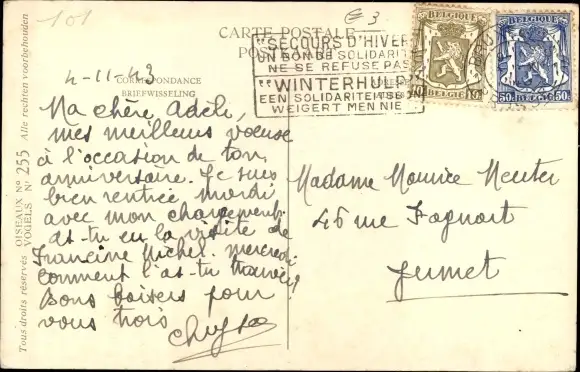 101
€ 3
CARTE POSTALE
POSTKAART
"SECOURS D'HIVER
UN BON DE SOLIDARITE
NE SE REFUSE PAS
"WINTERHULP"
EEN SOLIDARITEITSBON
WEIGERT MEN NIE
BELGIQUE
10
BELGIE
BELGIQUE
50c
BELGIE
50c
CORRESPONDANCE
BRIEFWISSELING
4-11-43
Ma chère Adèle,
mes meilleurs voeux
à l'occasion de ton
anniversaire. Je suis
bien rentrée mardi
avec mon chargement.
as-tu eu la visite de
Francine Michel. mercredi
Comment l'as-tu trouvée?
Bons baisers pour
vous trois
Madame Maurice
46 rue
Jumet
Tous droits réservés OISEAUX No 255 Alle rechten voorbehouden
VOGELS Nr